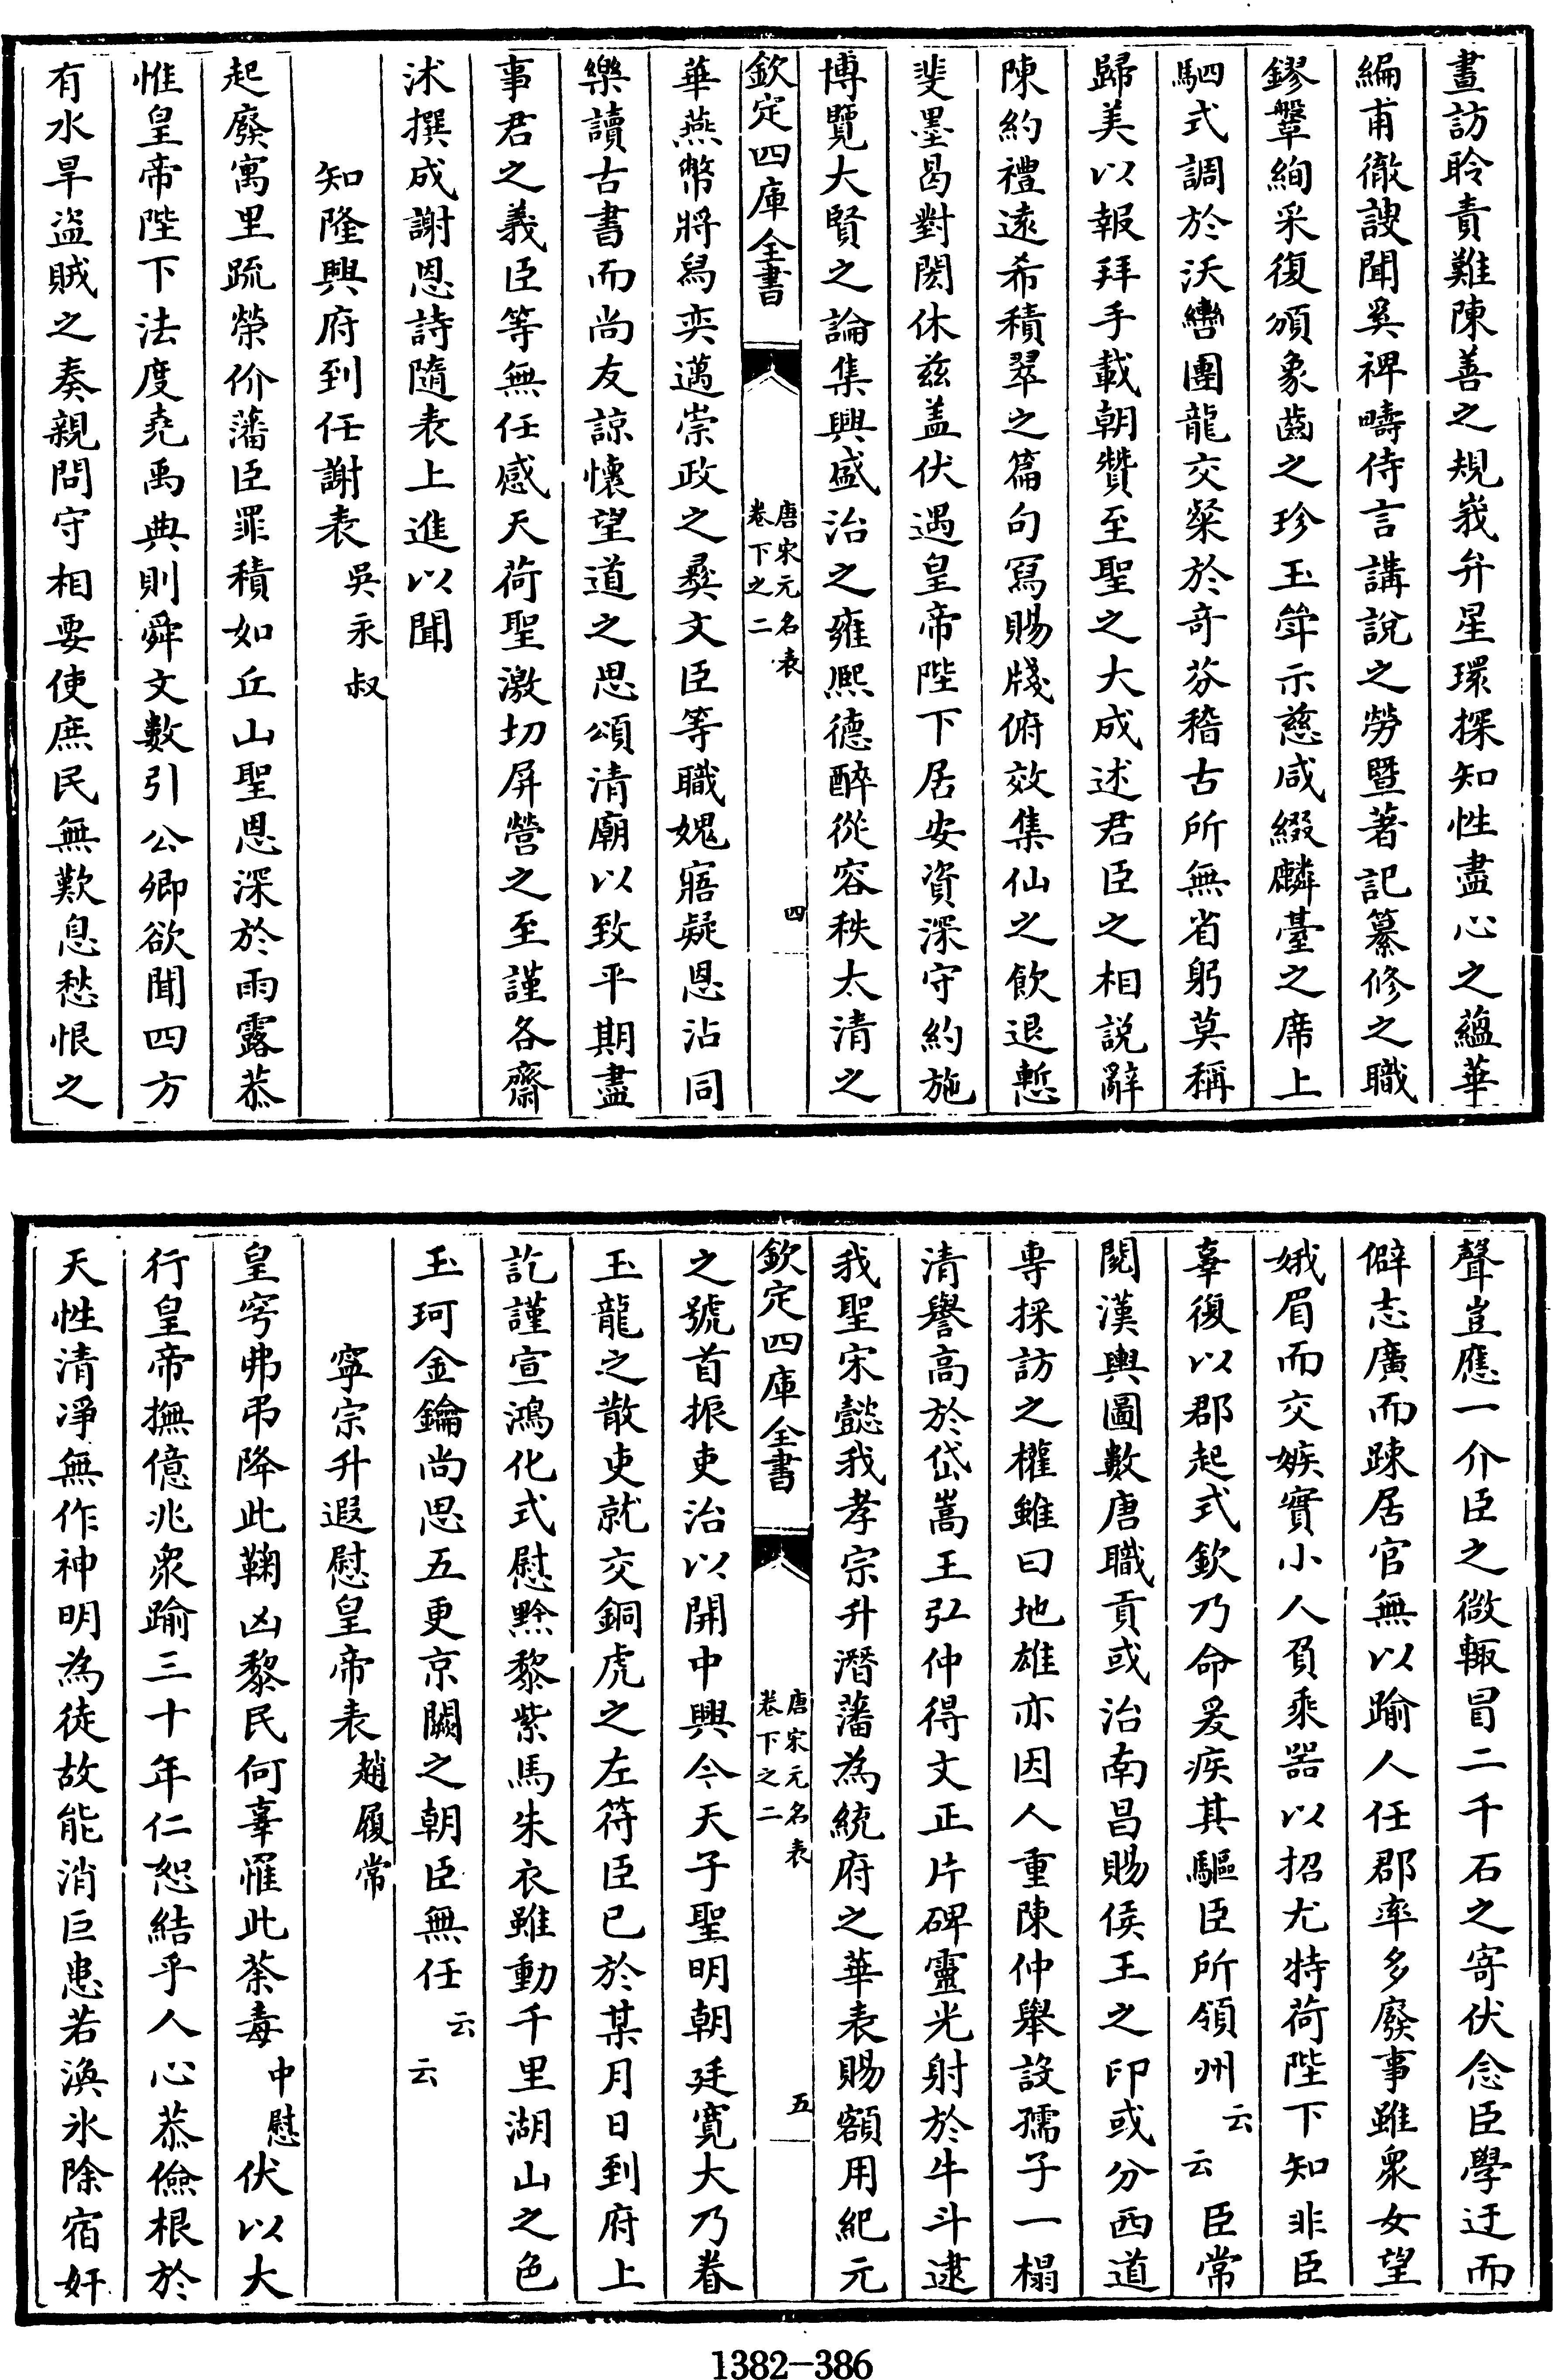 晝訪聆責難陳善之規峩弁星環探知性盡心之蘊華
編甫徹謏聞奚禆疇侍言講說之勞暨著記纂修之職
鏐鞶絢采復頒象齒之珍玉斝示慈咸綴麟臺之席上
駟式調於沃轡團龍交粲於奇芬稽古所無省躬莫稱
歸美以報拜手載朝贊至聖之大成述君臣之相説辭
陳約禮逺希積翠之篇句寫賜牋俯效集仙之飲退慙
斐墨曷對閎休兹盖伏遇皇帝陛下居安資深守約施
博覽大賢之論集興盛治之雍熈德醉從容秩太清之
欽定四庫全書
唐宋元名表
卷下之二
四
華燕幣將舄奕邁崇政之彜文臣等職媿寤疑恩沾同
樂讀古書而尚友諒懷望道之思頌清廟以致平期盡
事君之義臣等無任感天荷聖激切屏營之至謹各齋
沭撰成謝恩詩隨表上進以聞
知隆興府到任謝表 吳永叔
起廢寓里疏榮价藩臣罪積如丘山聖恩深於雨露恭
惟皇帝陛下法度堯禹典則舜文數引公卿欲聞四方
有水旱盗賊之奏親問守相要使庶民無歎息愁恨之
聲豈應一介臣之微輙冒二千石之寄伏念臣學迂而
僻志廣而踈居官無以踰人任郡率多廢事雖衆女望
娥眉而交嫉實小人負乘器以招尤特荷陛下知非臣
辜復以郡起式欽乃命爰疾其驅臣所領州云云臣常
閱漢輿圖數唐職貢或治南昌賜侯王之印或分西道
專採訪之權雖曰地雄亦因人重陳仲舉設孺子一榻
清譽高於岱嵩王弘仲得文正片碑靈光射於牛斗逮
我聖宋懿我孝宗升潛藩為統府之華表賜額用紀元
欽定四庫全書
唐宋元名表
卷下之二
五
之號首振吏治以開中興今天子聖明朝廷寛大乃眷
玉龍之散吏就交銅虎之左符臣已於某月日到府上
訖謹宣鴻化式慰黔黎紫馬朱衣雖動千里湖山之色
玉珂金鑰尚思五更京闕之朝臣無任云云
寧宗升遐慰皇帝表 趙履常
皇穹弗弔降此鞠凶黎民何辜罹此荼毒中慰伏以大
行皇帝撫億兆衆踰三十年仁恕結乎人心恭儉根於
天性清凈無作神明為徒故能消巨患若渙氷除宿奸
1382-386